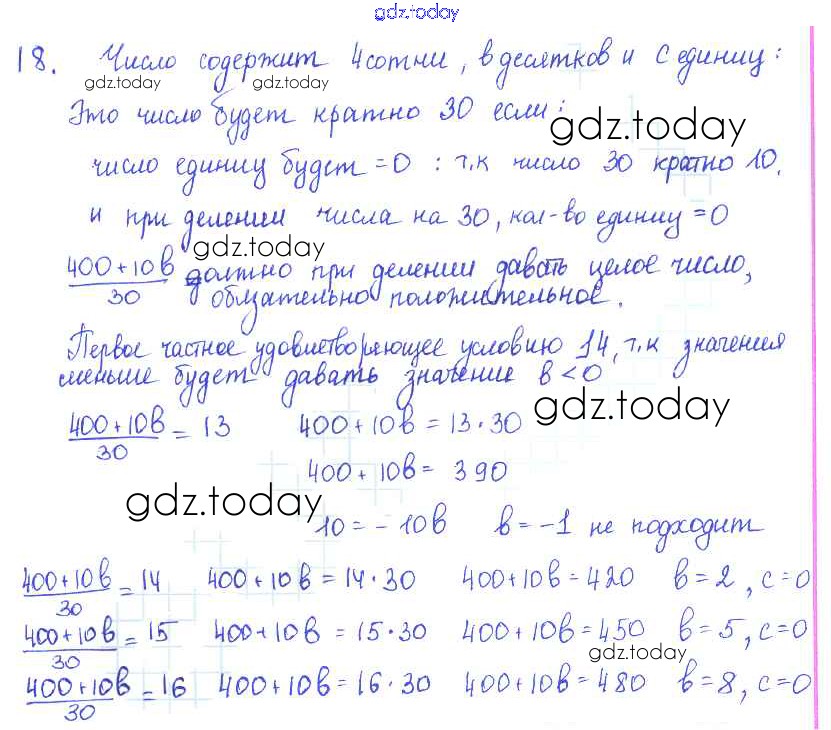 gdz.today
18. Число содержит 4 сотни, в десятков и с единиц:
gdz.today gdz.today
Это число будет кратно 30 если:
gdz.today
число единиц будет =0 : т.к число 30 кратно 10,
и при делении числа на 30, кол-во единиц =0
gdz.today
400+10в/30 должно при делении давать целое число,
обязательно положительное.
Первое частное удовлетворяющее условию 14, т.к значения
меньше будет давать значение в<0
gdz.today
400+10в/30 = 13 400+10в = 13·30
400+10в= 390
gdz.today
10=-10в в=-1 не подходит
400+10в/30 = 14 400+10в=14·30 400+10в=420 в=2, с=0
400+10в/30 = 15 400+10в = 15·30 400+10в=450 в=5, с=0
gdz.today
400+10в/30 = 16 400+10в=16·30 400+10в=480 в=8, с=0